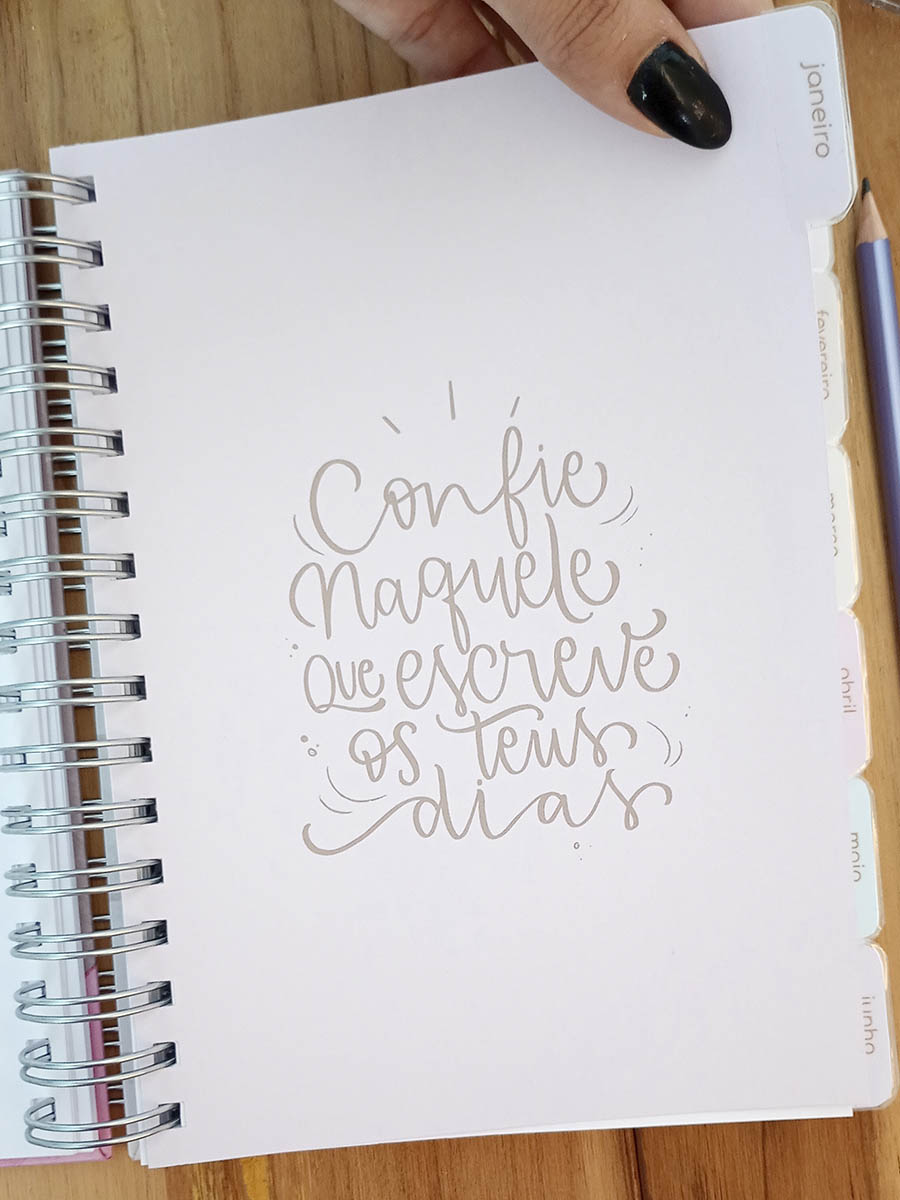 Confie
Naquele
Que escreve
os teus
dias
janeiro
fevereiro
março
abril
maio
junho